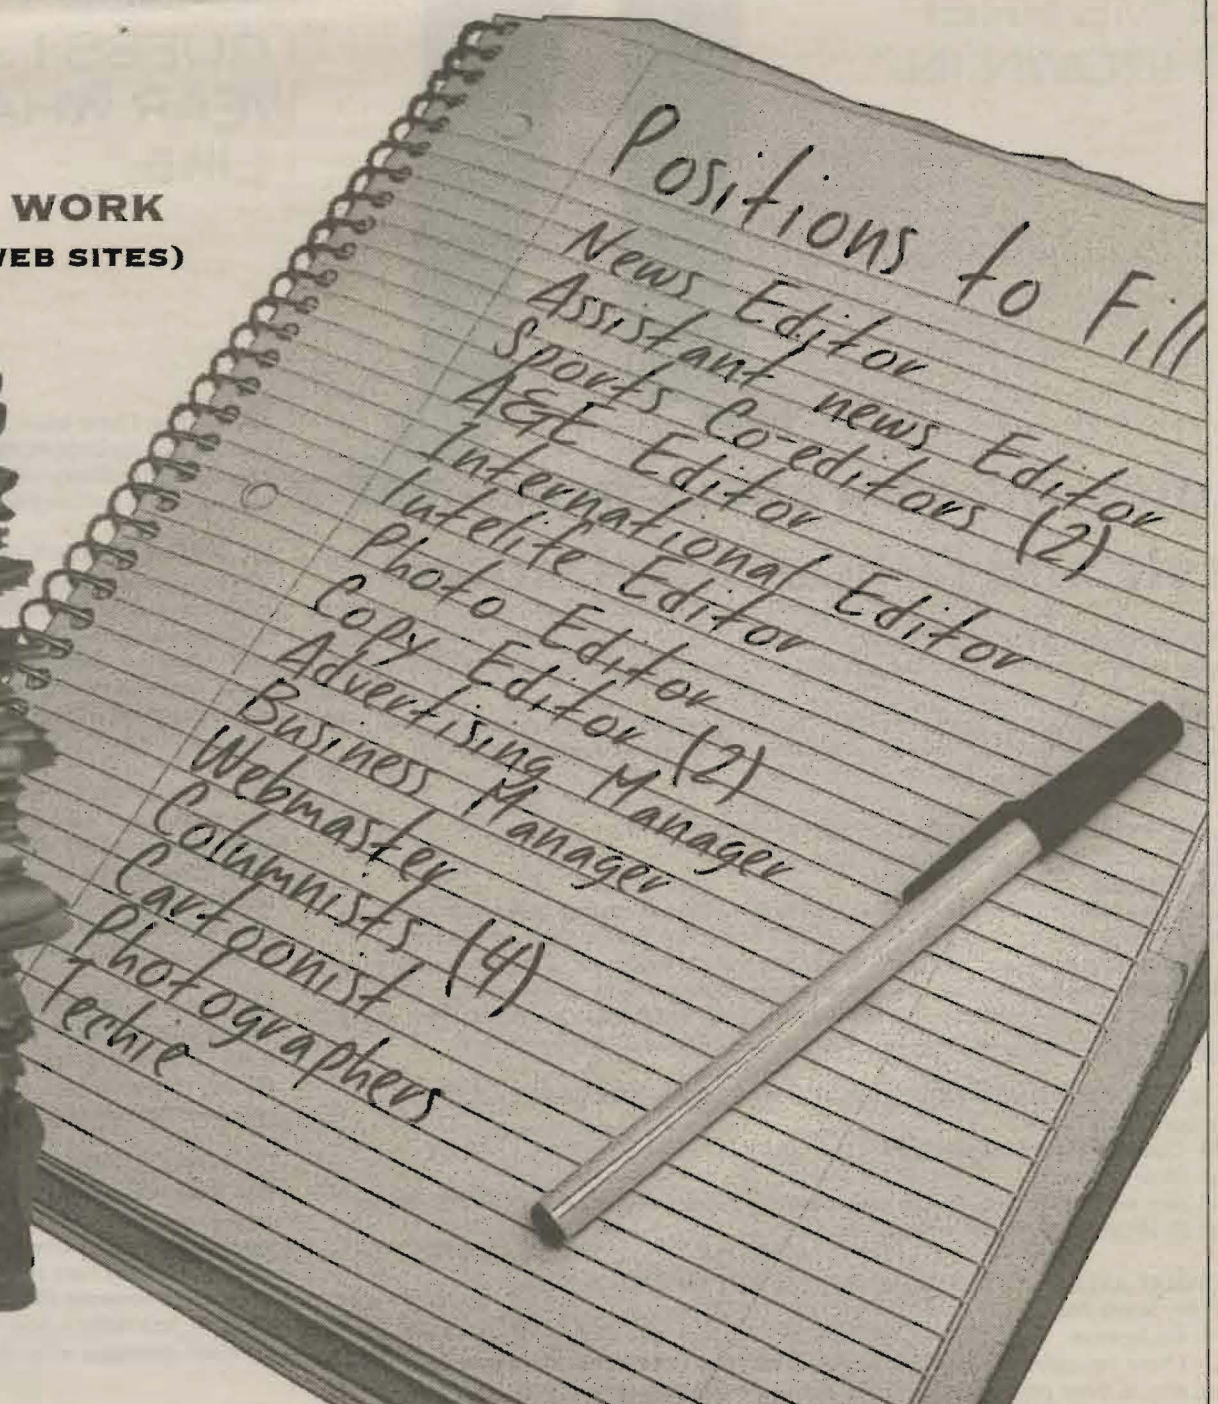 WORK
WEB SITES)
Positions to Fill
News Editor
Assistant news Editor
Sports Co-editors (2)
A&E Editor
International Editor
Intelife Editor
Photo Editor
Copy Editor (2)
Advertising Manager
Business Manager
Webmaster
Columnists (4)
Cartoonist
Photographers
Techie